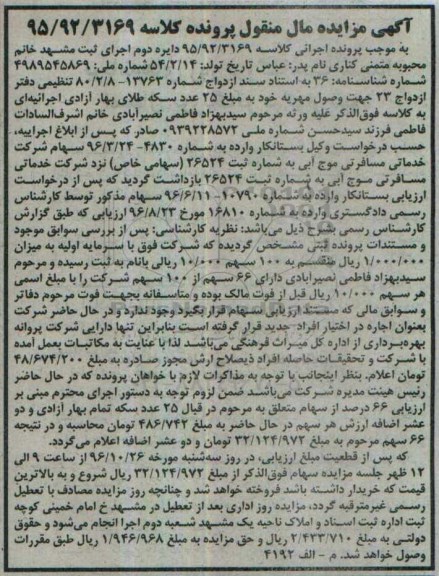 آگهی مزایده مال منقول پرونده کلاسه ۹۵/۹۲/۳۱۶۹
به موجب پرونده اجرائی کلاسه ۹۵/۹۲/۳۱۶۹ دایره دوم اجرای ثبت مشهد خانم
محبوبه متمنی کناری نام پدر: عباس تاریخ تولد: ۵۴/۲/۱۴ شماره ملی: ۴۹۸۹۵۴۵۸۶۹
شماره شناسنامه: ۳۶ به استناد سند ازدواج شماره ۱۳۷۶۳-۸۰/۲/۸ تنظیمی دفتر
ازدواج ۲۳ جهت وصول مهریه خود به مبلغ ۲۵ عدد سکه طلای بهار آزادی اجرائیه‌ای
به کلاسه فوق‌الذکر علیه ورثه مرحوم سیدبهزاد فاطمی نصیرآبادی خانم اشرف‌السادات
فاطمی فرزند سیدحسن شماره ملی ۰۹۳۹۲۲۸۵۷۲ صادر که پس از ابلاغ اجراییه،
حسب درخواست وکیل بستانکار وارده به شماره ۴۸۳۰-۹۶/۳/۲۴ سهام شرکت
خدماتی مسافرتی موج آبی به شماره ثبت ۲۶۵۲۴ (سهامی خاص) نزد شرکت خدماتی
مسافرتی موج آبی به شماره ثبت ۲۶۵۲۴ بازداشت گردید که پس از درخواست
ارزیابی بستانکار وارده به شماره ۱۰۷۹۰-۹۶/۶/۱۱ سهام مذکور توسط کارشناس
رسمی دادگستری وارده به شماره ۱۶۸۱۰ مورخ ۹۶/۸/۲۳ ارزیابی که طبق گزارش
کارشناس رسمی بشرح ذیل می‌باشد: نظریه کارشناسی: پس از بررسی سوابق موجود
و مستندات پرونده ثبتی مشخص گردیده که شرکت فوق با سرمایه اولیه به میزان
۱/۰۰۰/۰۰۰ ریال منقسم به ۱۰۰ سهم ۱۰/۰۰۰ ریالی بانام به ثبت رسیده و مرحوم
سیدبهزاد فاطمی نصیرآبادی دارای ۶۶ سهم از ۱۰۰ سهم شرکت را با مبلغ اسمی
هر سهم ۱۰/۰۰۰ ریال قبل از فوت مالک بوده و متاسفانه بجهت فوت مرحوم دفاتر
و سوابق مالی که مستند ارزیابی سهام قرار بگیرد وجود ندارد و در حال حاضر شرکت
بعنوان اجاره در اختیار افراد جدید قرار گرفته است بنابراین تنها دارایی شرکت پروانه
بهره‌برداری از اداره کل میراث فرهنگی می‌باشد لذا با عنایت به مکاتبات بعمل آمده
با شرکت و تحقیقات حاصله افراد ذیصلاح ارش مجوز صادره به مبلغ ۴۸/۶۷۴/۲۰۰
تومان اعلام. بنظر اینجانب با توجه به مذاکرات لازم با خواهان پرونده که در حال حاضر
رئیس هیئت مدیره شرکت می‌باشد ضمن لزوم توجه به دستور اجرای محترم مبنی بر
ارزیابی ۶۶ درصد از سهام متعلق به مرحوم در قبال ۲۵ عدد سکه تمام بهار آزادی و دو
عشر اضافه ارزش هر سهم در حال حاضر به مبلغ ۴۸۶/۷۴۲ تومان محاسبه و در نتیجه
۶۶ سهم مرحوم به مبلغ ۳۲/۱۲۴/۹۷۲ تومان و دو عشر اضافه اعلام می‌گردد.
که پس از قطعیت مبلغ ارزیابی، در روز سه‌شنبه مورخه ۹۶/۱۰/۲۶ از ساعت ۹ الی
۱۲ ظهر جلسه مزایده سهام فوق‌الذکر از مبلغ ۳۲/۱۲۴/۹۷۲ ریال شروع و به بالاترین
قیمت که خریدار داشته باشد فروخته خواهد شد و چنانچه روز مزایده مصادف با تعطیل
رسمی غیرمترقبه گردد، مزایده روز اداری بعد از تعطیل در مشهد خ امام خمینی کوچه
ثبت اداره ثبت اسناد و املاک ناحیه یک مشهد شعبه دوم اجرا انجام می‌شود و حقوق
دولتی به مبلغ ۲/۴۳۳/۷۱۰ ریال و حق مزایده به مبلغ ۱/۹۴۶/۹۶۸ ریال طبق مقررات
وصول خواهد شد. م - الف ۴۱۹۲